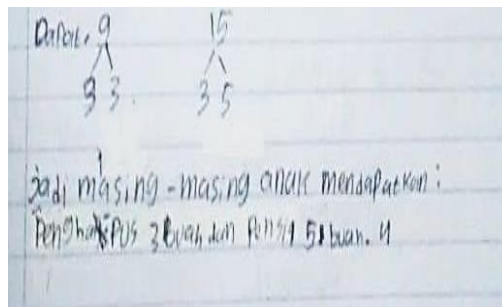 Dapat, 9 15
3 3 3 5
Jadi masing-masing anak mendapatkan:
Penghapus 3 buah dan Pensil 5 buah.